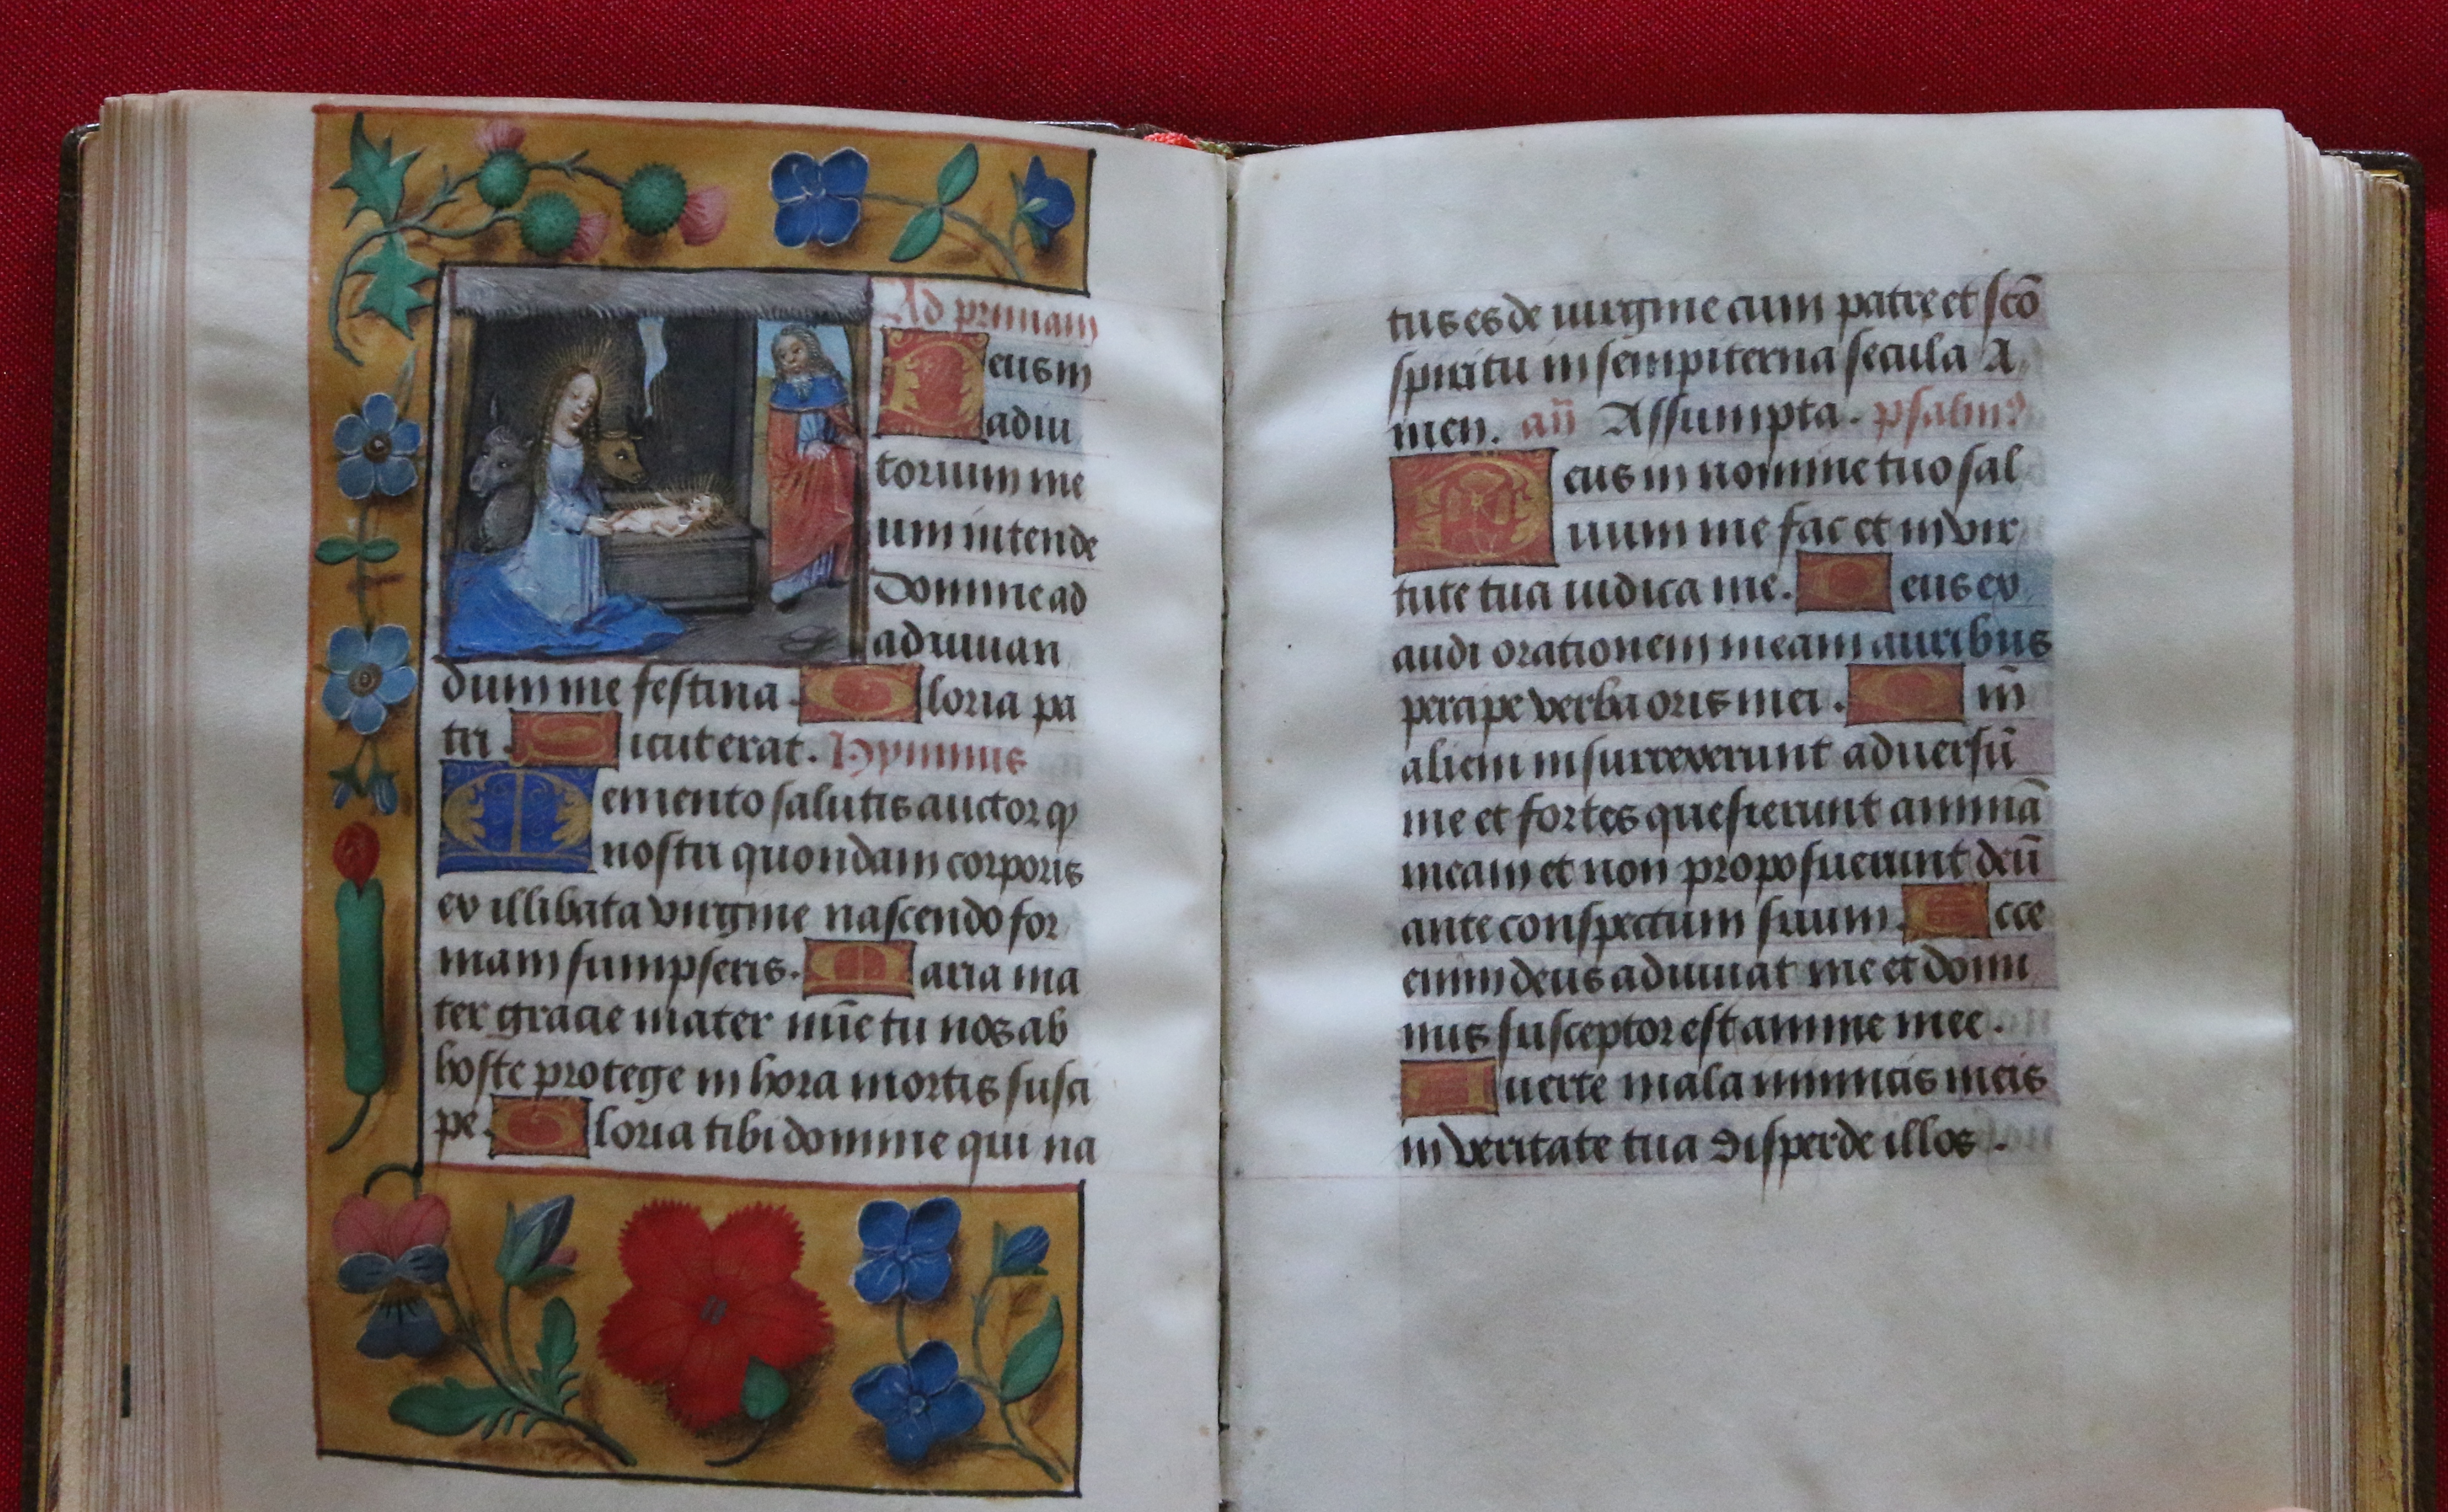 Ad primam
Deus in
adiu
torium me
um intende
Domine ad
adiuuan
dum me festina. Gloria pa
tri. Sicut erat. Hymnus
Memento salutis auctor ꝙ
nostri quondam corporis
ex illibata virgine nascendo for
mam sumpseris. Maria ma
ter gracie mater mīe tu nos ab
hoste protege in hora mortis susci
pe. Gloria tibi domine qui na
tus es de uirgine cum patre et scō
spiritu in sempiterna secula A
men. an̄ Assumpta. psalmꝰ
Deus in nomine tuo sal
uum me fac et in vir
tute tua iudica me. Deus ex
audi orationem meam auribus
percipe verba oris mei. Qm̄
alieni insurrexerunt aduersū
me et fortes quesierunt animā
meam et non proposuerunt deū
ante conspectum suum. Ecce
enim deus adiuuat me et domi
nus susceptor est anime mee.
Auerte mala inimicis meis
in veritate tua disperde illos.